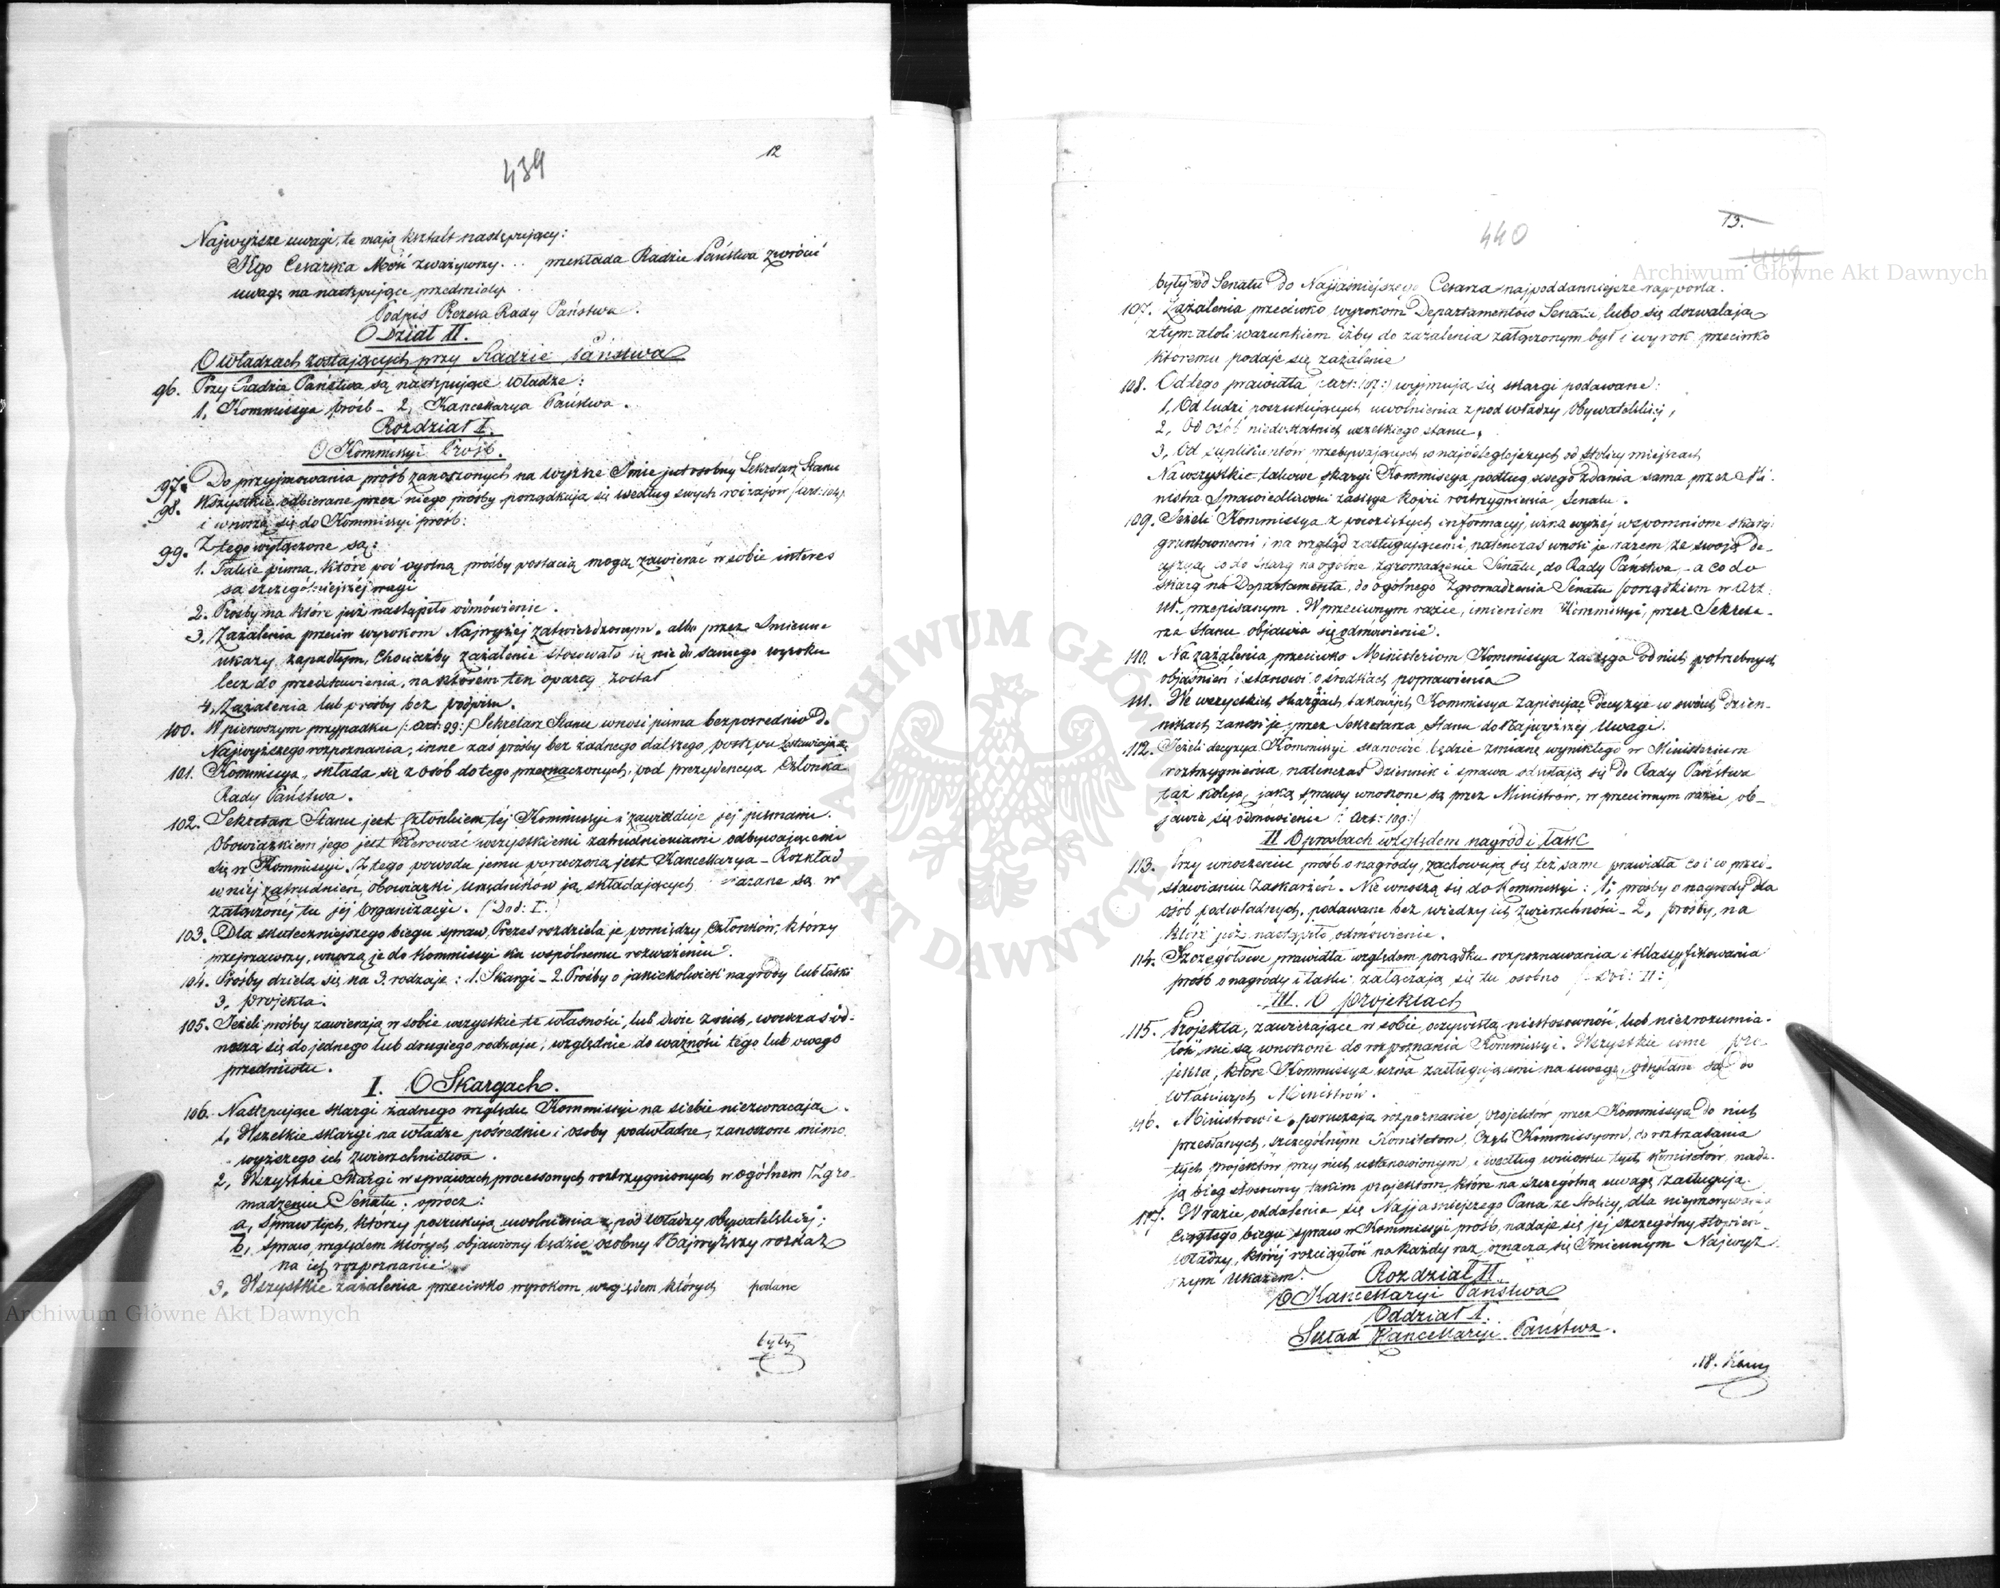 439
12
Najwyższe uwagi, te mają kształt następujący:
JEgo Cesarska Mość zważywszy... przekłada Radzie Państwa zwrócić
uwagę na następujące przedmioty.
Podpis Prezesa Rady Państwa.
ODział II.
O władzach zostających przy Radzie Państwa
96. Przy Radzie Państwa są następujące władze:
1, Kommissya próśb – 2, Kancellarya Państwa.
Rozdział I.
O Kommissyi Próśb.
97. Do przyjmowania próśb zanoszonych na wyższe Imie jest osobny Sekretarz Stanu
98. Wszystkie odbierane przez niego prośby porządkują się według swych rodzajów (art: 104)
i wnoszą się do Kommissyi próśb:
99. Z tego wyłączone są:
1. Takie pisma, które pod ogólną prośby postacią mogą zawierać w sobie interes
sa szczególniejszej wagi
2. Prośby na które już nastąpiło odmówienie.
3. Zażalenia przeciw wyrokom Najwyżej zatwierdzonym, albo przez Imienne
ukazy zapadłym, chociażby zażalenie stosowało się nie do samego wyroku
lecz do przedstawienia, na którém ten oparty został
4, Zażalenia lub prośby bez podpisu.
100. W pierwszym przypadku (: Art: 99:) Sekretarz Stanu wnosi pisma bezpośrednio do
Najwyższego rozpoznania, inne zaś prośby bez żadnego dalszego postępu zostawiają się
101. Kommissya, składa się z osób do tego przeznaczonych, pod prezydencyą Członka
Rady Państwa.
102. Sekretarz Stanu jest Członkiem tej Kommissyi i zawiaduje jej pismami.
Obowiązkiem jego jest kierować wszystkiemi zatrudnieniami odbywającemi
się w Kommissyi. Z tego powodu jemu poruczoną jest Kancellarya – Rozkład
w niéj zatrudnień, obowiązki Urzędników ją składających wskazane są w
załączonéj tu jéj Organizacyi. (Dod: I.)
103. Dla skuteczniejszego biegu spraw, Prezes rozdziela je pomiędzy Członków, którzy
przejrzawszy, wnoszą je do Kommissyi ku wspólnemu rozważeniu.
104. Prośby dzielą się na 3. rodzaje: 1. Skargi – 2. Prośby o jakiekolwiek nagrody lub łaski
3, projekta.
105. Jeżeli prośby zawierają w sobie wszystkie te własności, lub dwie z nich, wówczas od-
noszą się do jednego lub drugiego rodzaju, względnie do ważności tego lub owego
przedmiotu.
I. O Skargach.
106. Następujące skargi żadnego względu Kommissyi na siebie niezwracają.
1, Wszelkie skargi na władze pośrednie i osoby podwładne, zanoszone mimo
wyższego ich zwierzchnictwa.
2, Wszystkie Skargi w sprawach processowych roztrzygnionych w ogólnem Zgro-
madzeniu Senatu, oprócz:
a, spraw tych, którzy poszukują uwolnienia z pod władzy obywatelskiéj;
b, spraw, względem których objawiony będzie osobny Najwyższy rozkaz
na ich rozpoznanie.
3, Wszystkie zażalenia przeciwko wyrokom, względem których podane
były
440
13.
449
były od Senatu do Najjaśniejszego Cesarza najpoddanniejsze rapporta.
107. Zażalenia przeciwko wyrokom Departamentów Senatu, lubo się dozwalają
z tym atoli warunkiem iżby do zażalenia załączonym był i wyrok przeciwko
któremu podaje się zażalenie
108. Od tego prawidła (:art: 107:) wyjmują się skargi podawane:
1, Od ludzi poszukujących uwolnienia z pod władzy Obywatelskiéj,
2, Od osób niedostatnich wszelkiego stanu,
3, Od Suplikantów przebywających w najodleglejszych od stolicy miejscach
Na wszystkie takowe skargi Kommissya, podług swego zdania sama przez Mi-
nistra Sprawiedliwości zasięga kopii roztrzygnienia Senatu.
109. Jeżeli Kommissya z powziętych informacyj, uzna wyżéj wspomnione skargi
gruntownemi i na wzgląd zasługującemi, natenczas wnosi je razem ze swoją de-
cyzyą, co do skarg na ogólne zgromadzenie Senatu, do Rady Państwa – a co do
skarg na Departamenta, do ogólnego Zgromadzenia Senatu porządkiem w Art:
111. przepisanym. W przeciwnym razie, imieniem Kommissyi przez Sekreta-
rza Stanu objawia się odmówienie.
110. Na zażalenia przeciwko Ministeriom Kommissya zasięga od nich potrzebnych
objaśnień i stanowi o środkach poprawienia
111. We wszystkich skargach takowych Kommissya zapisując decyzye w swoich dzien-
nikach zanosi je przez Sekretarza Stanu do Najwyższéj Uwagi.
112. Jeżeli decyzya Kommissyi stanowić będzie zmianę wynikłego w Ministerium
roztrzygnienia, natenczas Dziennik i sprawa odsyłają się do Rady Państwa
taż koleją, jaką sprawy wnoszone są przez Ministrów, w przeciwnym razie, ob-
jawia się odmówienie (: Art: 109:)
II O prośbach względem nagród i łask
113. Przy wnoszeniu próśb o nagrody, zachowują się też same prawidła co i w przed-
stawianiu zaskarżeń. Nie wnoszą się do Kommissyi: 1, prośby o nagrody dla
osób podwładnych, podawane bez wiedzy ich zwierzchności – 2, prośby, na
które już nastąpiło odmówienie.
114. Szczegółowe prawidła względem porządku rozpoznawania i klassyfikowania
próśb o nagrody i łaski załączają się tu osobno (: Dod: II:)
III. O projektach
115. Projekta, zawierające w sobie, oczywistą niestosowność, lub niezrozumia-
łość nie są wnoszone do rozpoznania Kommissyi. Wszystkie inne pro
jekta, które Kommissya uzna zasługującemi na uwagę, odsyłane są do
właściwych Ministrów.
116. Ministrowie, poruczają rozpoznanie, projektów przez Kommissya do nich
przesłanych, szczególnym Komitetom, czyli Kommissyom, do roztrząsania
tych projektów przy nich ustanowionym, i według wniosku tych Komitetów, nada-
ją bieg stosowny takim projektom, które na szczególną uwagę zasługują.
117. W razie, oddalenia się Najjaśniejszego Pana, ze Stolicy, dla nieprzerywania
ciągłego biegu spraw w Kommissyi próśb, nadaje się jéj szczególny stopień
władzy, któréj rozciągłość na każdy raz, oznacza się Imiennym Najwyż-
szym Ukazem.
Rozdział II.
O Kancellaryi Państwa
Oddział I.
Skład Kancellaryi Państwa.
118. Kancy
Archiwum Główne Akt Dawnych
Archiwum Główne Akt Dawnych
ARCHIWUM GŁÓWNE AKT DAWNYCH